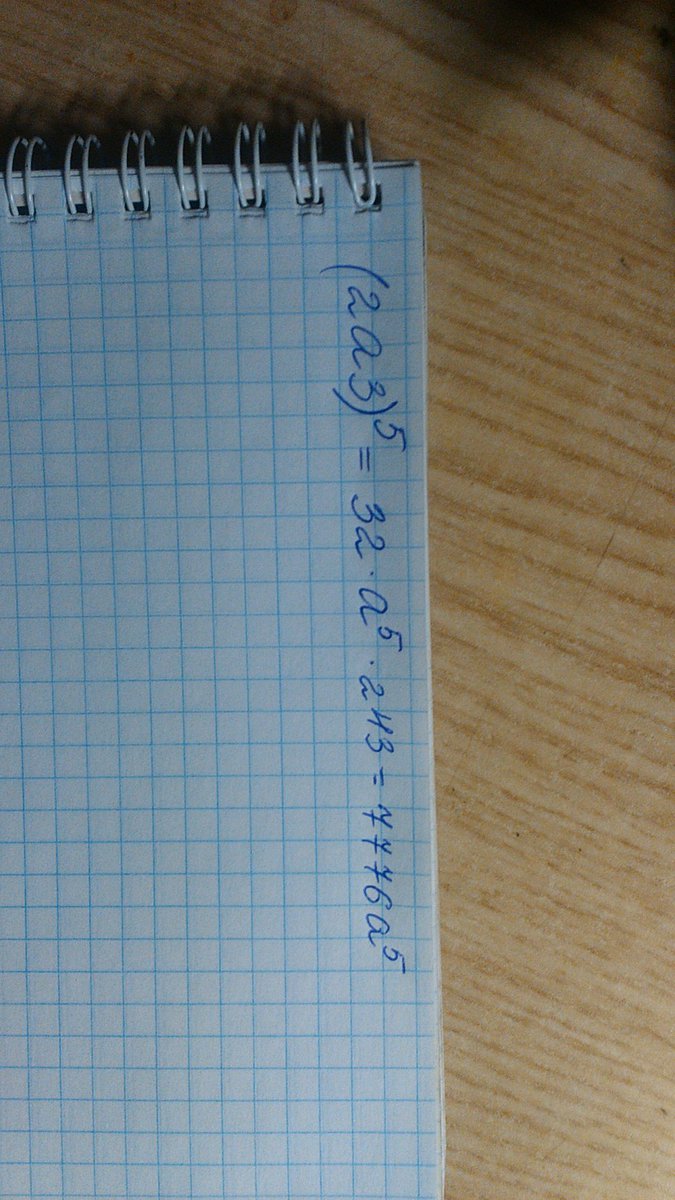 (2a3)⁵ = 32 · a⁵ · 243 = 7776a⁵